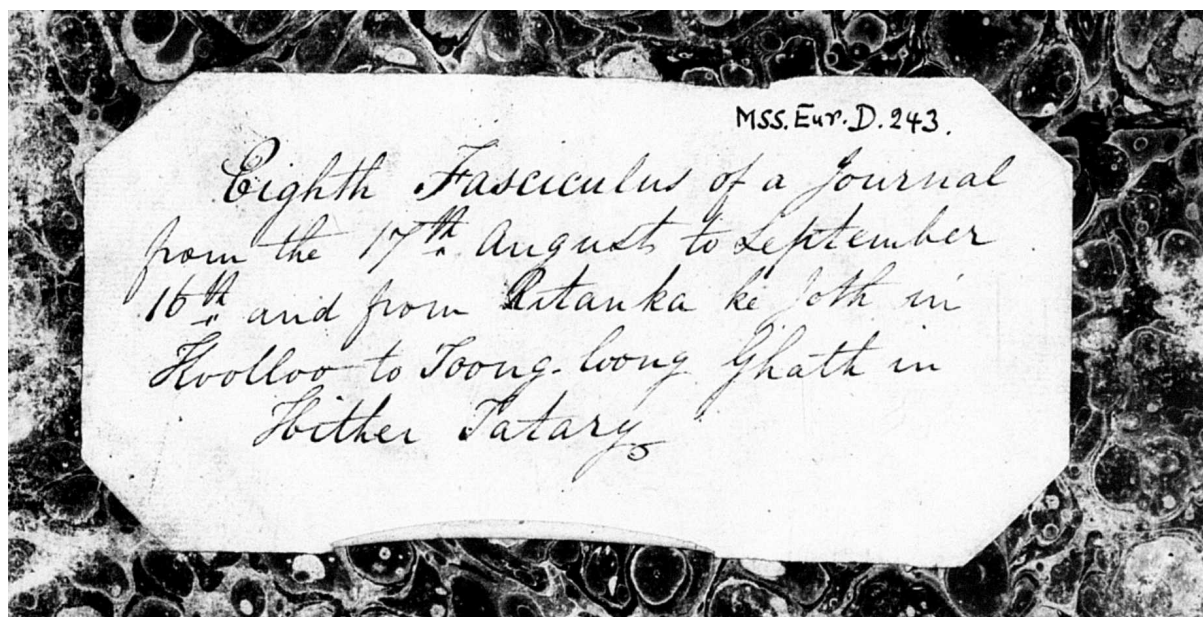 MSS. Eur. D. 243.
Eighth Fasciculus of a Journal
from the 17th August to September
16th and from Ritanka ke Joth in
Koolloo to Toong-loong Ghath in
Hither Tatary